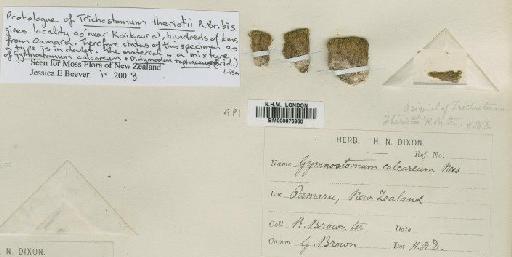 Protologue of Trichostomum theriotii R. Br. bis
gives locality as near Kaikoura, hundreds of kms
from Oamaru, therefore status of this specimen as
type is in doubt. The material is a mixture
of Gymnostomum calcareum &
Seen for Moss Flora of New Zealand
Jessica E Beever iv 2003
N.H.M. LONDON
Original of Trichostomum
H.N.D.
HERB. H. N. DIXON.
Ref. No.
Name Gymnostomum calcareum Nees
Loc. Oamaru, New Zealand
Coll. R. Brown, ter Date
Comm. G. Brown Det. H.N.D.
N. DIXON.